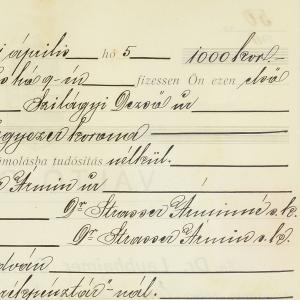 április hó 5 1000 kor.-
hó 9-én fizessen Ön ezen első
Szilágyi Dezső úr
Egyezer korona
számolásba tudósítás nélkül.
Ármin úr
Dr Strasser Árminné s.k.
Dr Strasser Ármin s.k.